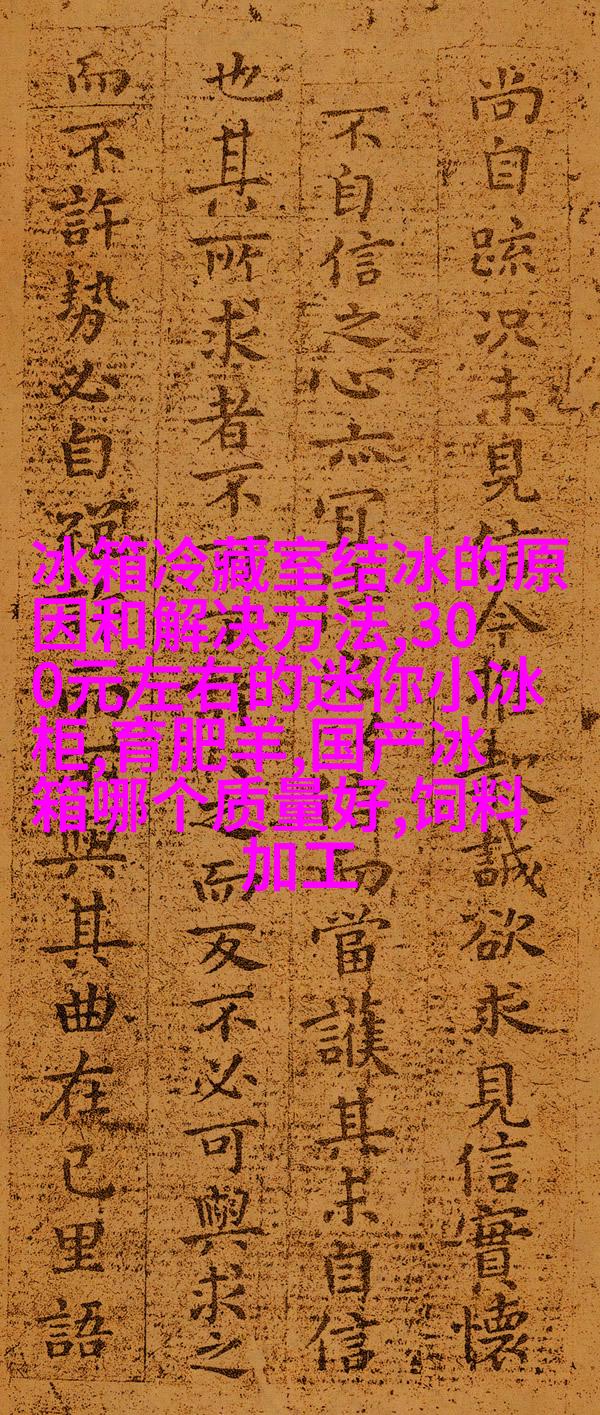 尚自疏况未見信今推誠欲求見信實懷
不自信之心亦宜當護其未自信
也其所求者不之而反不必可與求之
而不許勢必自與其曲在已里語
冰箱冷藏室结冰的原
因和解决方法,30
0元左右的迷你小冰
柜,育肥羊,国产冰
箱哪个质量好,饲料
加工